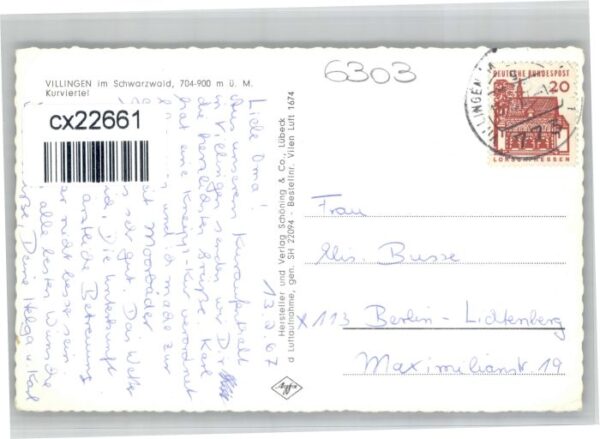 VILLINGEN im Schwarzwald, 704-900 m ü. M.
Kurviertel
cx22661
6303
13.9.67
Liebe Oma!
Von unserem Kuraufenthalt
in Villingen senden wir Dir
die herzlichsten Grüße. Karl
hat eine Kneipp-Kur verordnet
und ich mache zur
Moorbäder
sehr gut. Das Wetter
Die Unterkunft
ärztliche Betreuung
nicht besser sein
alle besten Wünsche
Deine Helga u. Karl
Hersteller und Verlag Schöning & Co., Lübeck
Luftaufnahme, gen. SH 22094 Bestellnr. Vilen Luft 1674
VILLINGEN
DEUTSCHE BUNDESPOST
20
LORSCH/HESSEN
Frau
Elis. Busse
X 113 Berlin-Lichtenberg
Maximilianstr 19